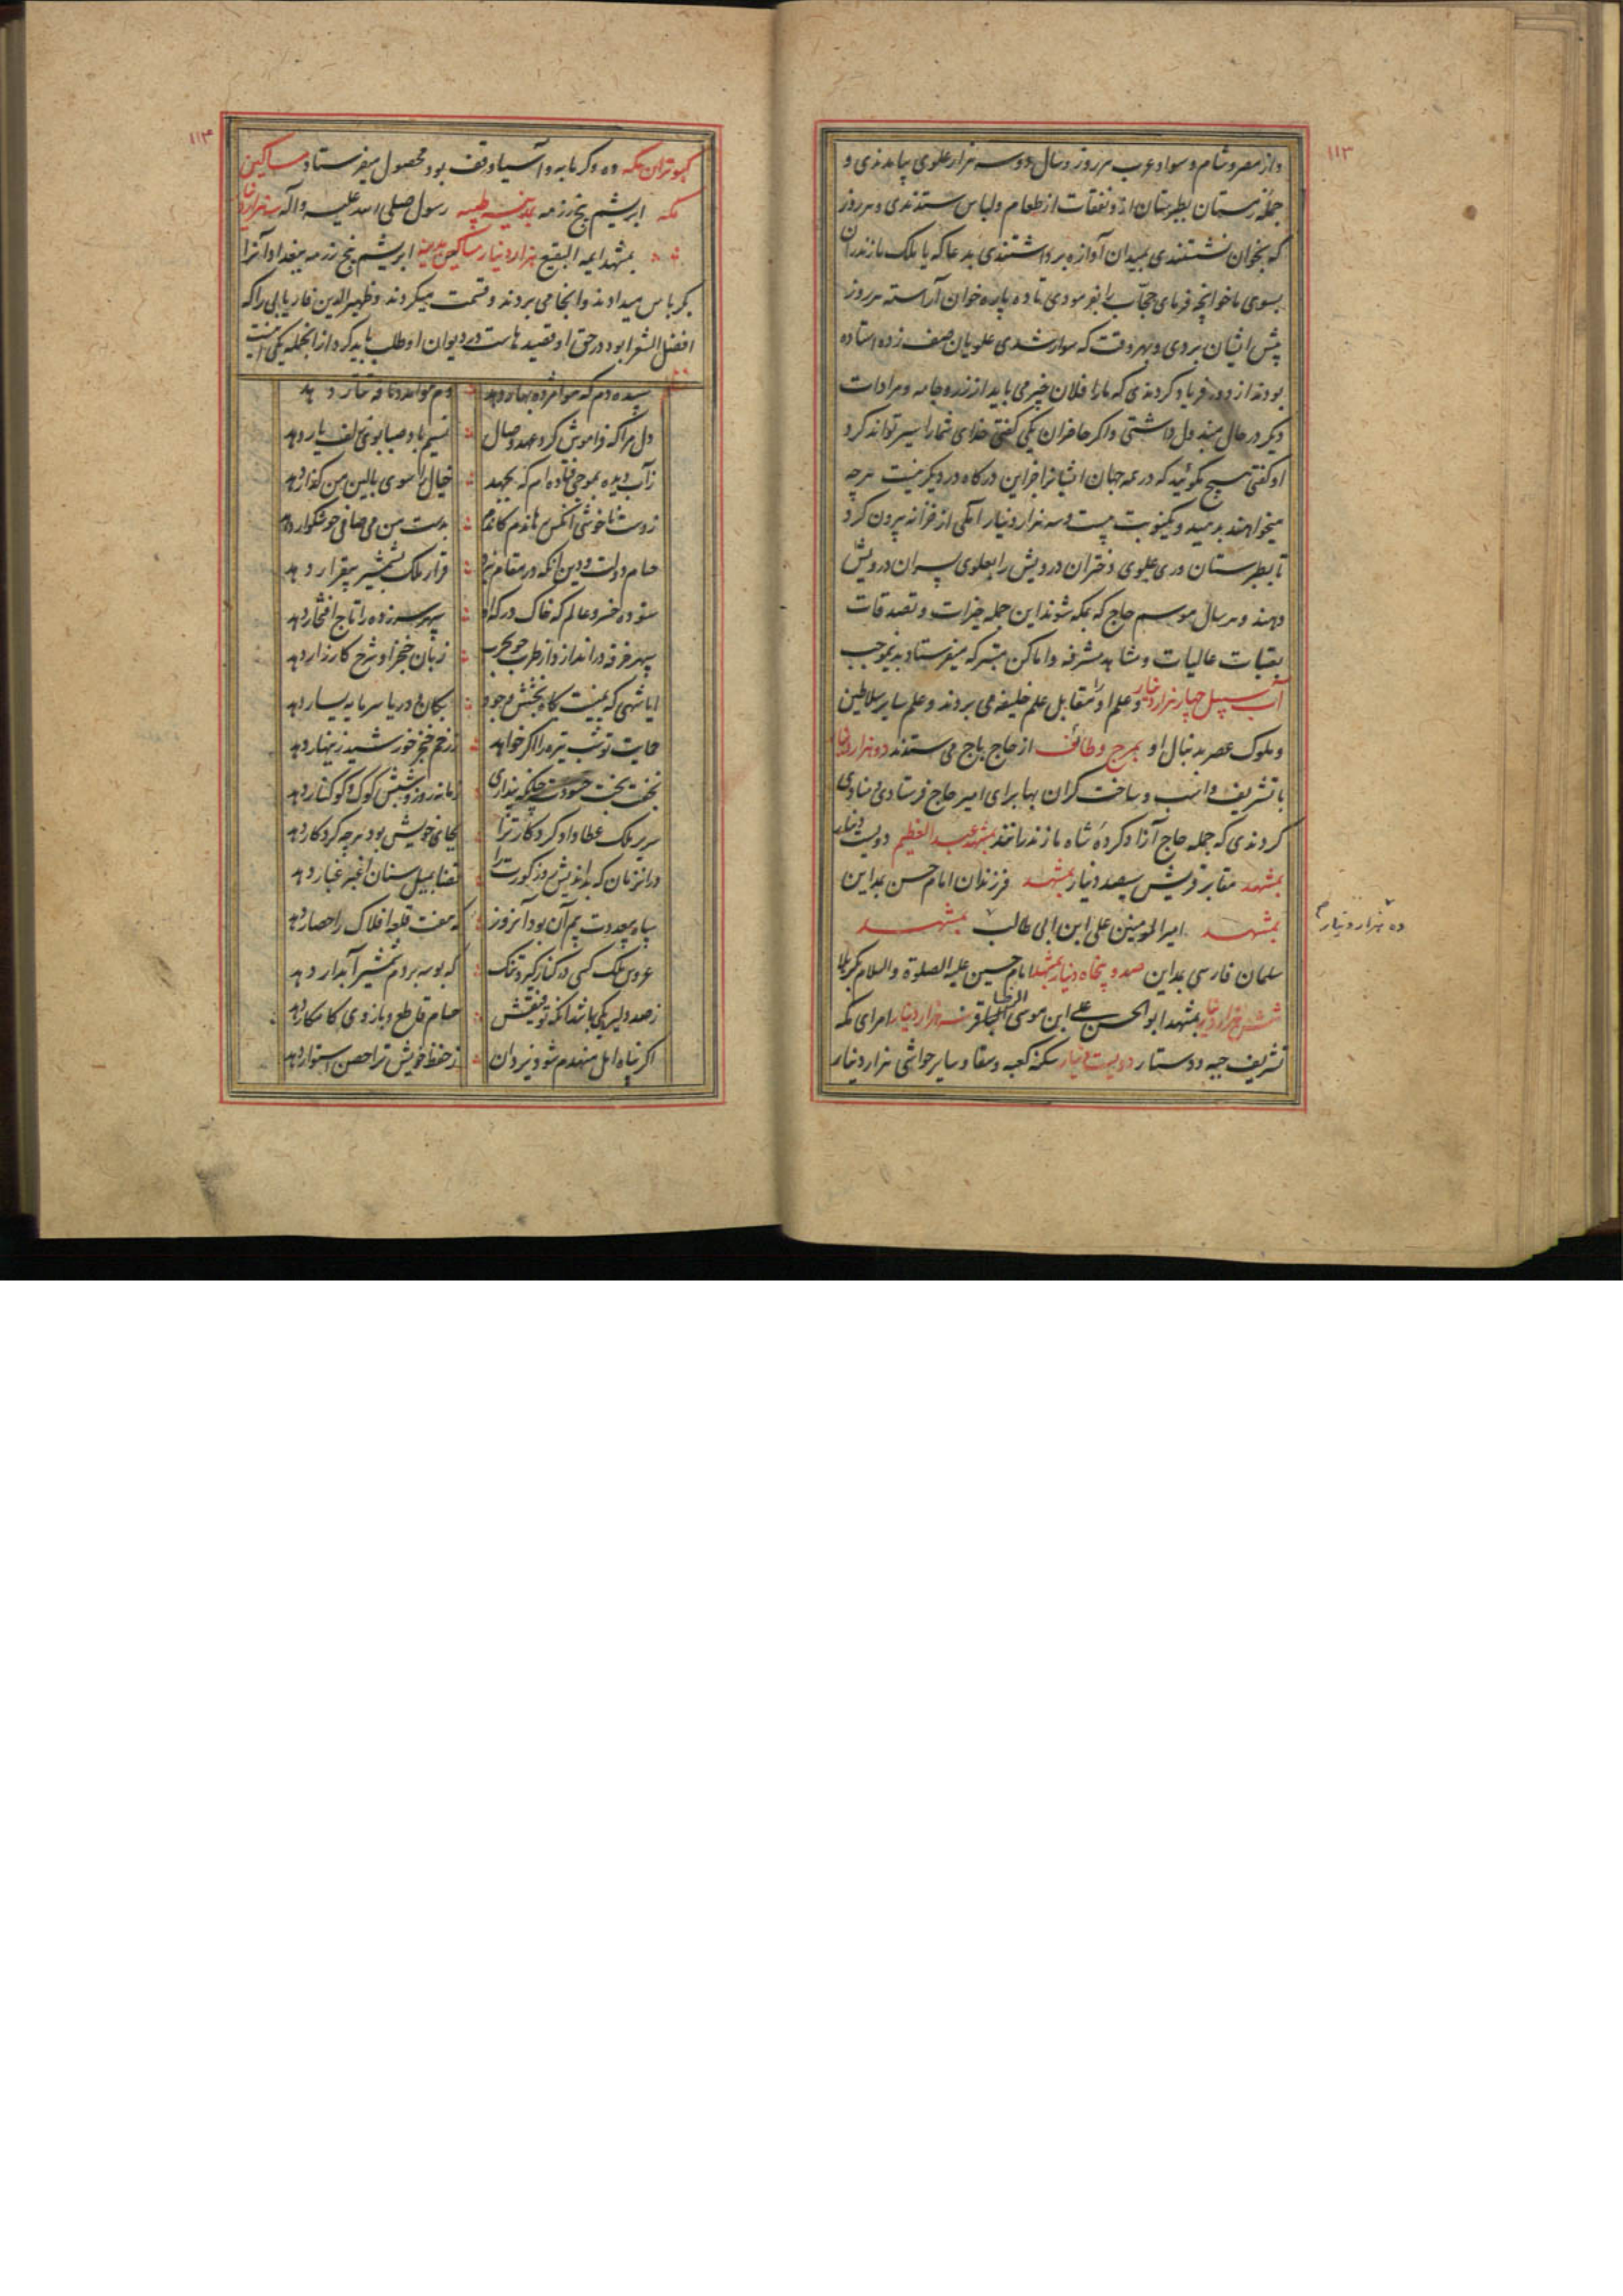 ۱۱۳
واز مصر و شام و سواد عرب هر روز و سال دو سه هزار علوی بیامدندی و
جمله زمستان بطبرستان ازو نفقات از طعام و لباس ستدندی و هر روز
که بخوان نشستندی بمیدان آوازه برداشتندی بدعا که یا ملک مازندران
بسوی ما خوانچه فرمای حجاب را بفرمودی تا ده پاره خوان آراسته هر روز
پیش ایشان بردی و بهر وقت که سوار شدی علویان صف زده استاده
بودند از دور فریاد کردندی که ما را فلان چیز می باید از زر و جامه و مرادات
دیگر در حال مبذول داشتی و اگر حاضران یکی گفتی خدای شما را سیر تواند کرد
او گفتی هیچ مگوئید که در همه جهان ایشانرا جز این درگاه در دیگر نیست هر چه
میخواهند بدهید و یکنوبت بیست و سه هزار دینار املکی از خزانه بیرون کرد
تا بطبرستان و ری علوی دختران درویش را بعلوی پسران درویش
دهند و هر سال موسم حاج که بمکه شوند این جمله خیرات و تصدقات
بعتبات عالیات و مشاهد مشرفه و اماکن متبرکه میفرستاد بدینموجب
آب سبیل چهار هزار دینار و علم او را مقابل علم خلیفه می بردند و علم سایر سلاطین
و ملوک عصر بدنبال او بمرج و طائف از حاج باج می ستدند دو هزار دینار
با تشریف و اسب و ساخت گران بها برای امیر حاج فرستادی و منادی
کردندی که جمله حاج آزاد کرده شاه مازندرانند بمشهد عبد العظیم دویست دینار
بمشهد مقابر قریش سیصد دینار بمشهد فرزندان امام حسن بمداین
بمشهد امیر المومنین علی ابن ابی طالب بمشهد
ده هزار دینار
سلمان فارسی بمداین صد و پنجاه دینار بمشهد امام حسین علیه الصلوة و السلام بکربلا
شش هزار دینار بمشهد ابو الحسن علی ابن موسی الرضا سه هزار دینار امرای مکه
تشریف جبه و دستار دویست دینار سکنه کعبه و سقا و سایر حواشی هزار دینار
۱۱۴
کبوتران مکه ده دکرمابه و آسیا وقف بود محصول میفرستاد مساکین
مکه ابریشم پنج رزمه بمدینه طیبه رسول صلی الله علیه و آله سه هزار دینار
بمشهد ایمه البقیع هزار دینار مساکین مدینه ابریشم پنج رزمه ببغداد آنرا
بکرباس میدادند و آنجا می بردند و قسمت میکردند و ظهیر الدین فاریابی را که
افضل الشعرا بود در حق او قصیدهاست در دیوان او طلب باید کرد از آنجمله یکی اینست
سپیده دم که هوا مژده بهار دهد دم هوا مدد نافه تتار دهد
دل مرا که فراموش کرد عهد وصال نسیم باد صبا بوی زلف یار دهد
ز آب دیده بموجی فتاده ام که بجهد خیال را سوی بالین من گذار دهد
ز دست ناخوشی آنکس نماندم کاندم بدست من می صافی خوشگوار دهد
حسام دولت و دین آنکه در مقام نبرد قرار ملک بشمشیر بیقرار دهد
ستوده خسرو عالم که خاک درگه او سپهر سر زده را تاج افتخار دهد
سپهر خرقه در اندازد از طرب چو بحرب زبان خنجر او شرح کارزار دهد
ایا شهی که یمینت گاه بخشش و جود بکان و دریا سرمایه یسار دهد
حمایت تو شب تیره را اگر خواهد ز زخم خنجر خورشید زینهار دهد
نخفت بخت حسودت چنانکه پنداری زمانه روز و شبش کوک و کوکنار دهد
سریر ملک عطا داد کردکار ترا بجای خویش بود هر چه کردکار دهد
در آنزمان که بداندیش روزکورت را قضا بمیل سنان اغبر غبار دهد
سپاه بیعددت بیم آن بود آنروز که هفت قلعه افلاک را حصار دهد
عروس ملک کسی در کنار گیرد تنگ که بوسه بر دم شمشیر آبدار دهد
ز صد دلیر یکی باشد آنکه توفیقش حسام قاطع و بازوی کامکار دهد
اگر پناه امل منهدم شود یزدان ز حفظ خویش ترا حصن استوار دهد